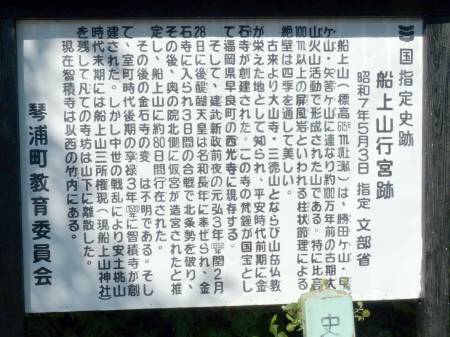 国指定史跡
船上山行宮跡
昭和7年5月3日 指定 文部省
船上山(標高 は、勝田ケ山・甲
ケ山・矢筈ケ山に連なり約100万年前の古期大
山火山活動で形成された山である。特に比高
100m以上の屏風岩といわれる柱状節理による
絶壁は四季を通して美しい。
古来より大山寺・三徳山とならび山岳仏教
が栄えた地として知られ、平安時代前期に金
石寺が創建された。この寺の梵鐘が国宝とし
て福岡県早良町の西光寺に現存する。
そして、建武新政前夜の元弘3年 閏2月
28日に後醍醐天皇は名和長年に奉ぜられ、金
石寺に入られ3日間の合戦で北条勢を破り、
その後、奥の院北側に仮宮が造営されたと推
定し、船上山に約80日間行在された。
その後の金石寺の変 は不明である。そし
て、室町時代後期の享禄3年 に智積寺が創
建された。しかし中世の戦乱により安土桃山
時代末期には船上山三所権現(現船上山神社)
を残して凡ての寺坊は山下に離散した。
現在智積寺は以西の竹内にある。
琴浦町教育委員会
史